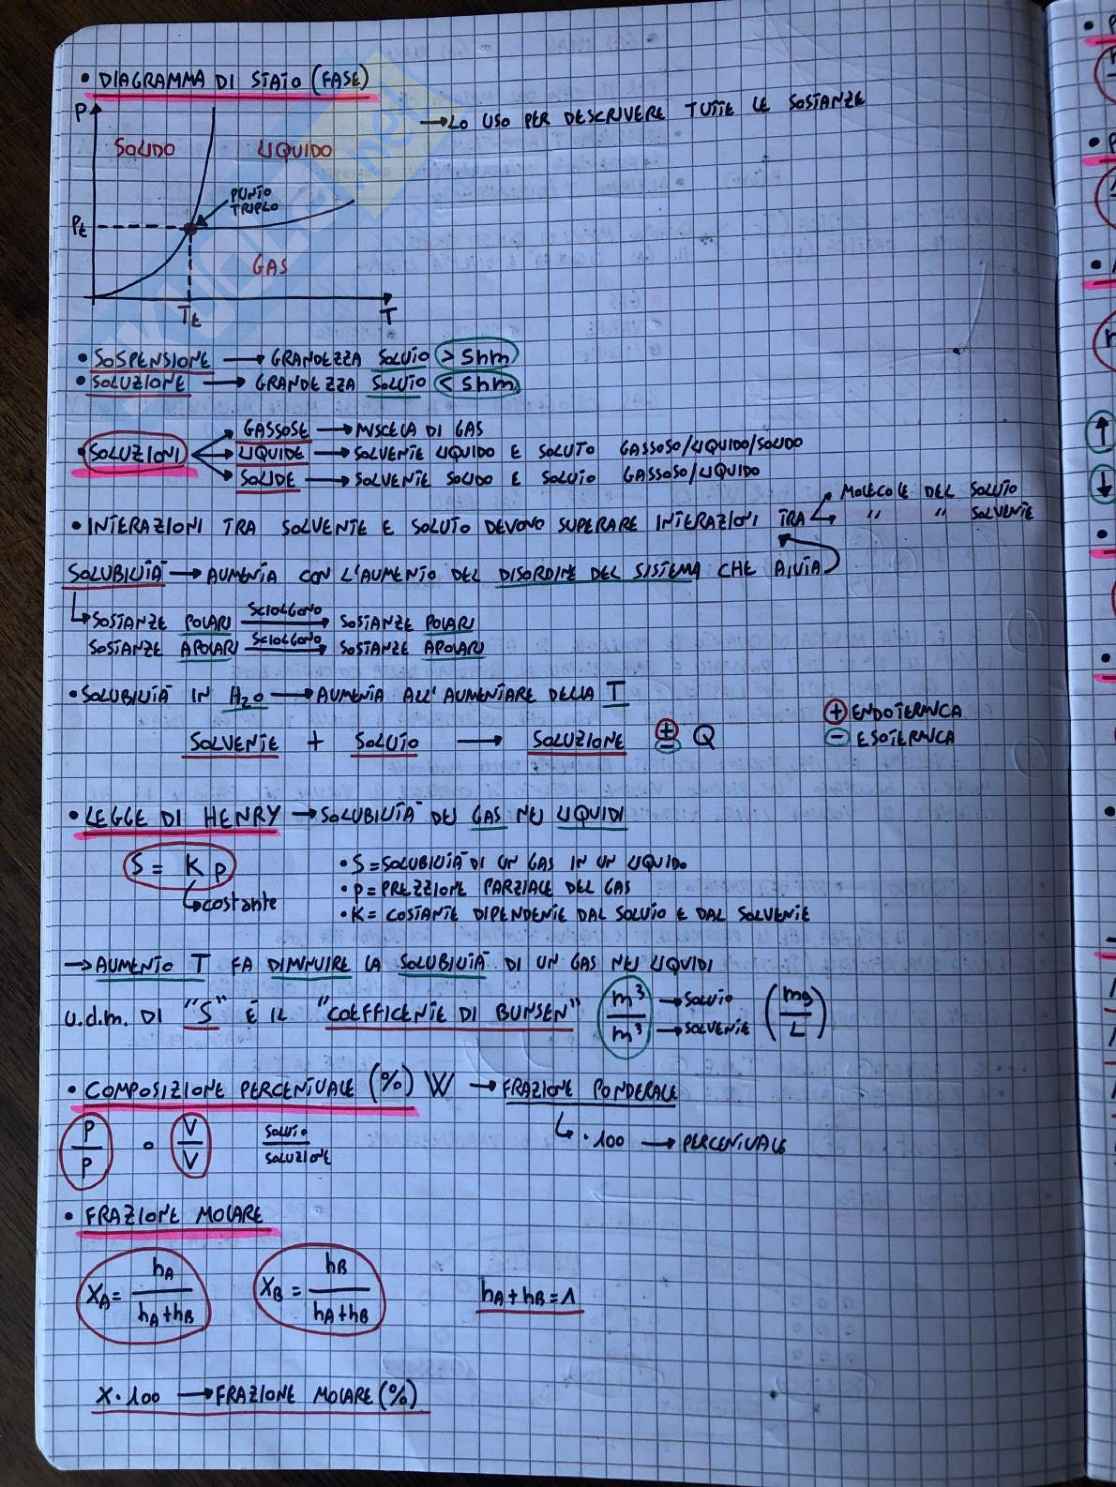 • DIAGRAMMA DI STATO (FASE)
P
→ LO USO PER DESCRIVERE TUTTE LE SOSTANZE
SOLIDO LIQUIDO
PUNTO
TRIPLO
Pt
GAS
Tt T
• SOSPENSIONE → GRANDEZZA SOLUTO > 5nm
• SOLUZIONE → GRANDEZZA SOLUTO < 5nm
GASSOSE → MISCELA DI GAS
• SOLUZIONI LIQUIDE → SOLVENTE LIQUIDO E SOLUTO GASSOSO/LIQUIDO/SOLIDO
SOLIDE → SOLVENTE SOLIDO E SOLUTO GASSOSO/LIQUIDO
• INTERAZIONI TRA SOLVENTE E SOLUTO DEVONO SUPERARE INTERAZIONI TRA MOLECOLE DEL SOLUTO
" " SOLVENTE
SOLUBILITÀ → AUMENTA CON L'AUMENTO DEL DISORDINE DEL SISTEMA CHE AIUTA
SOSTANZE POLARI SCIOLGONO → SOSTANZE POLARI
SOSTANZE APOLARI SCIOLGONO → SOSTANZE APOLARI
• SOLUBILITÀ IN H2O → AUMENTA ALL'AUMENTARE DELLA T
+ ENDOTERMICA
SOLVENTE + SOLUTO → SOLUZIONE ± Q
- ESOTERMICA
• LEGGE DI HENRY → SOLUBILITÀ DEI GAS NEI LIQUIDI
S = K p
• S = SOLUBILITÀ DI UN GAS IN UN LIQUIDO
costante
• P = PREZZIONE PARZIALE DEL GAS
• K = COSTANTE DIPENDENTE DAL SOLUTO E DAL SOLVENTE
→ AUMENTO T FA DIMINUIRE LA SOLUBILITÀ DI UN GAS NEI LIQUIDI
u.d.m. DI "S" È IL "COEFFICENTE DI BUNSEN" m³ → SOLUTO (mg
m³ → SOLVENTE L)
• COMPOSIZIONE PERCENTUALE (%) W → FRAZIONE PONDERALE
· 100 → PERCENTUALE
P/P o V/V SOLUTO
SOLUZIONE
• FRAZIONE MOLARE
XA = nA/(nA+nB) XB = nB/(nA+nB) nA+nB=1
X · 100 → FRAZIONE MOLARE (%)